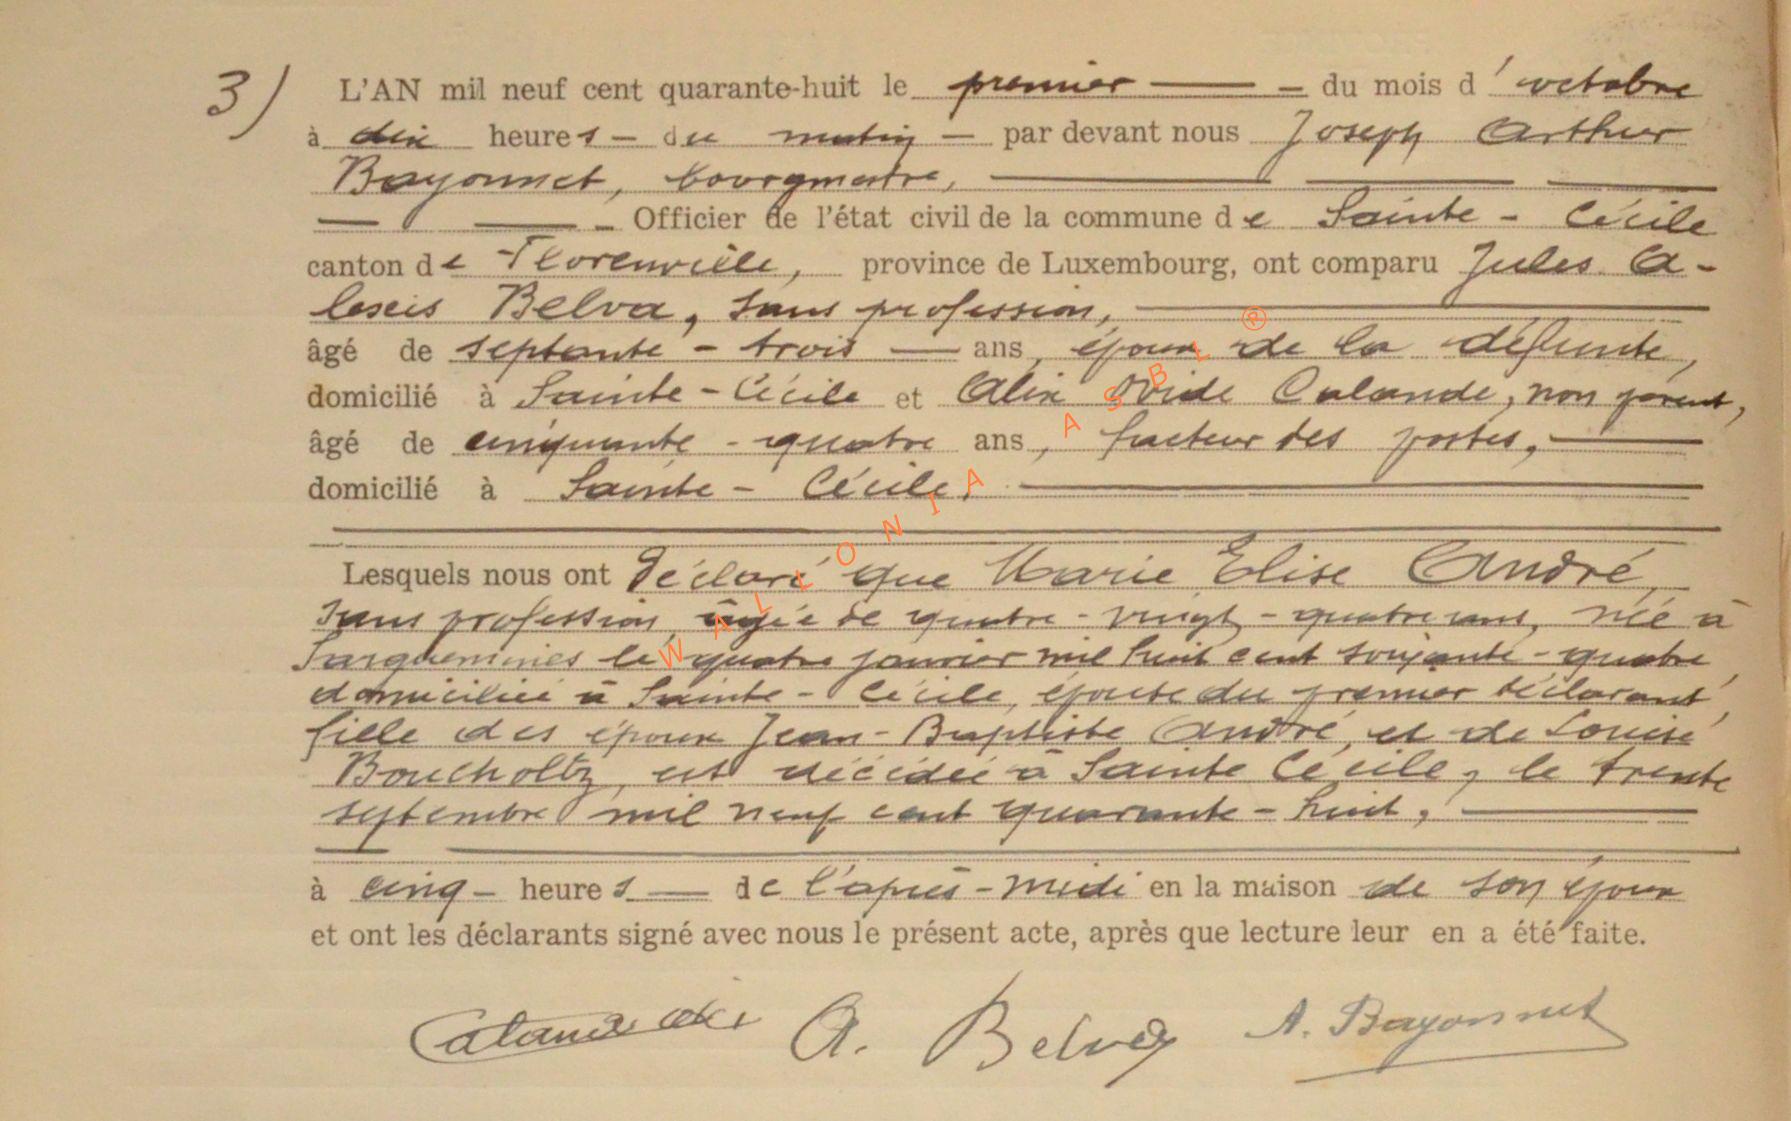 3) L'AN mil neuf cent quarante-huit le premier — — du mois d'octobre
à dix heures — du matin — par devant nous Joseph Arthur
Bayonnet, bourgmestre,
— — — Officier de l'état civil de la commune de Sainte - Cécile
canton de Florenville, province de Luxembourg, ont comparu Jules A-
lexis Belva, sans profession,
âgé de septante - trois — ans, époux de la défunte,
domicilié à Sainte - Cécile et Alix Ovide Calande, non parent,
âgé de cinquante - quatre ans, facteur des postes,
domicilié à Sainte - Cécile.
Lesquels nous ont déclaré que Marie Elise André,
sans profession, âgée de quatre - vingt - quatre ans, née à
Sarguemines le quatre janvier mil huit cent soixante - quatre,
domiciliée à Sainte - Cécile, épouse du premier déclarant,
fille des époux Jean - Baptiste André, et de Louise
Boucholtz, est décédée à Sainte Cécile, le trente
septembre mil neuf cent quarante - huit,
à cinq - heures — de l'après - midi en la maison de son époux
et ont les déclarants signé avec nous le présent acte, après que lecture leur en a été faite.
Calande Alix A. Belva A. Bayonnet
WALLONIA ASBL ®